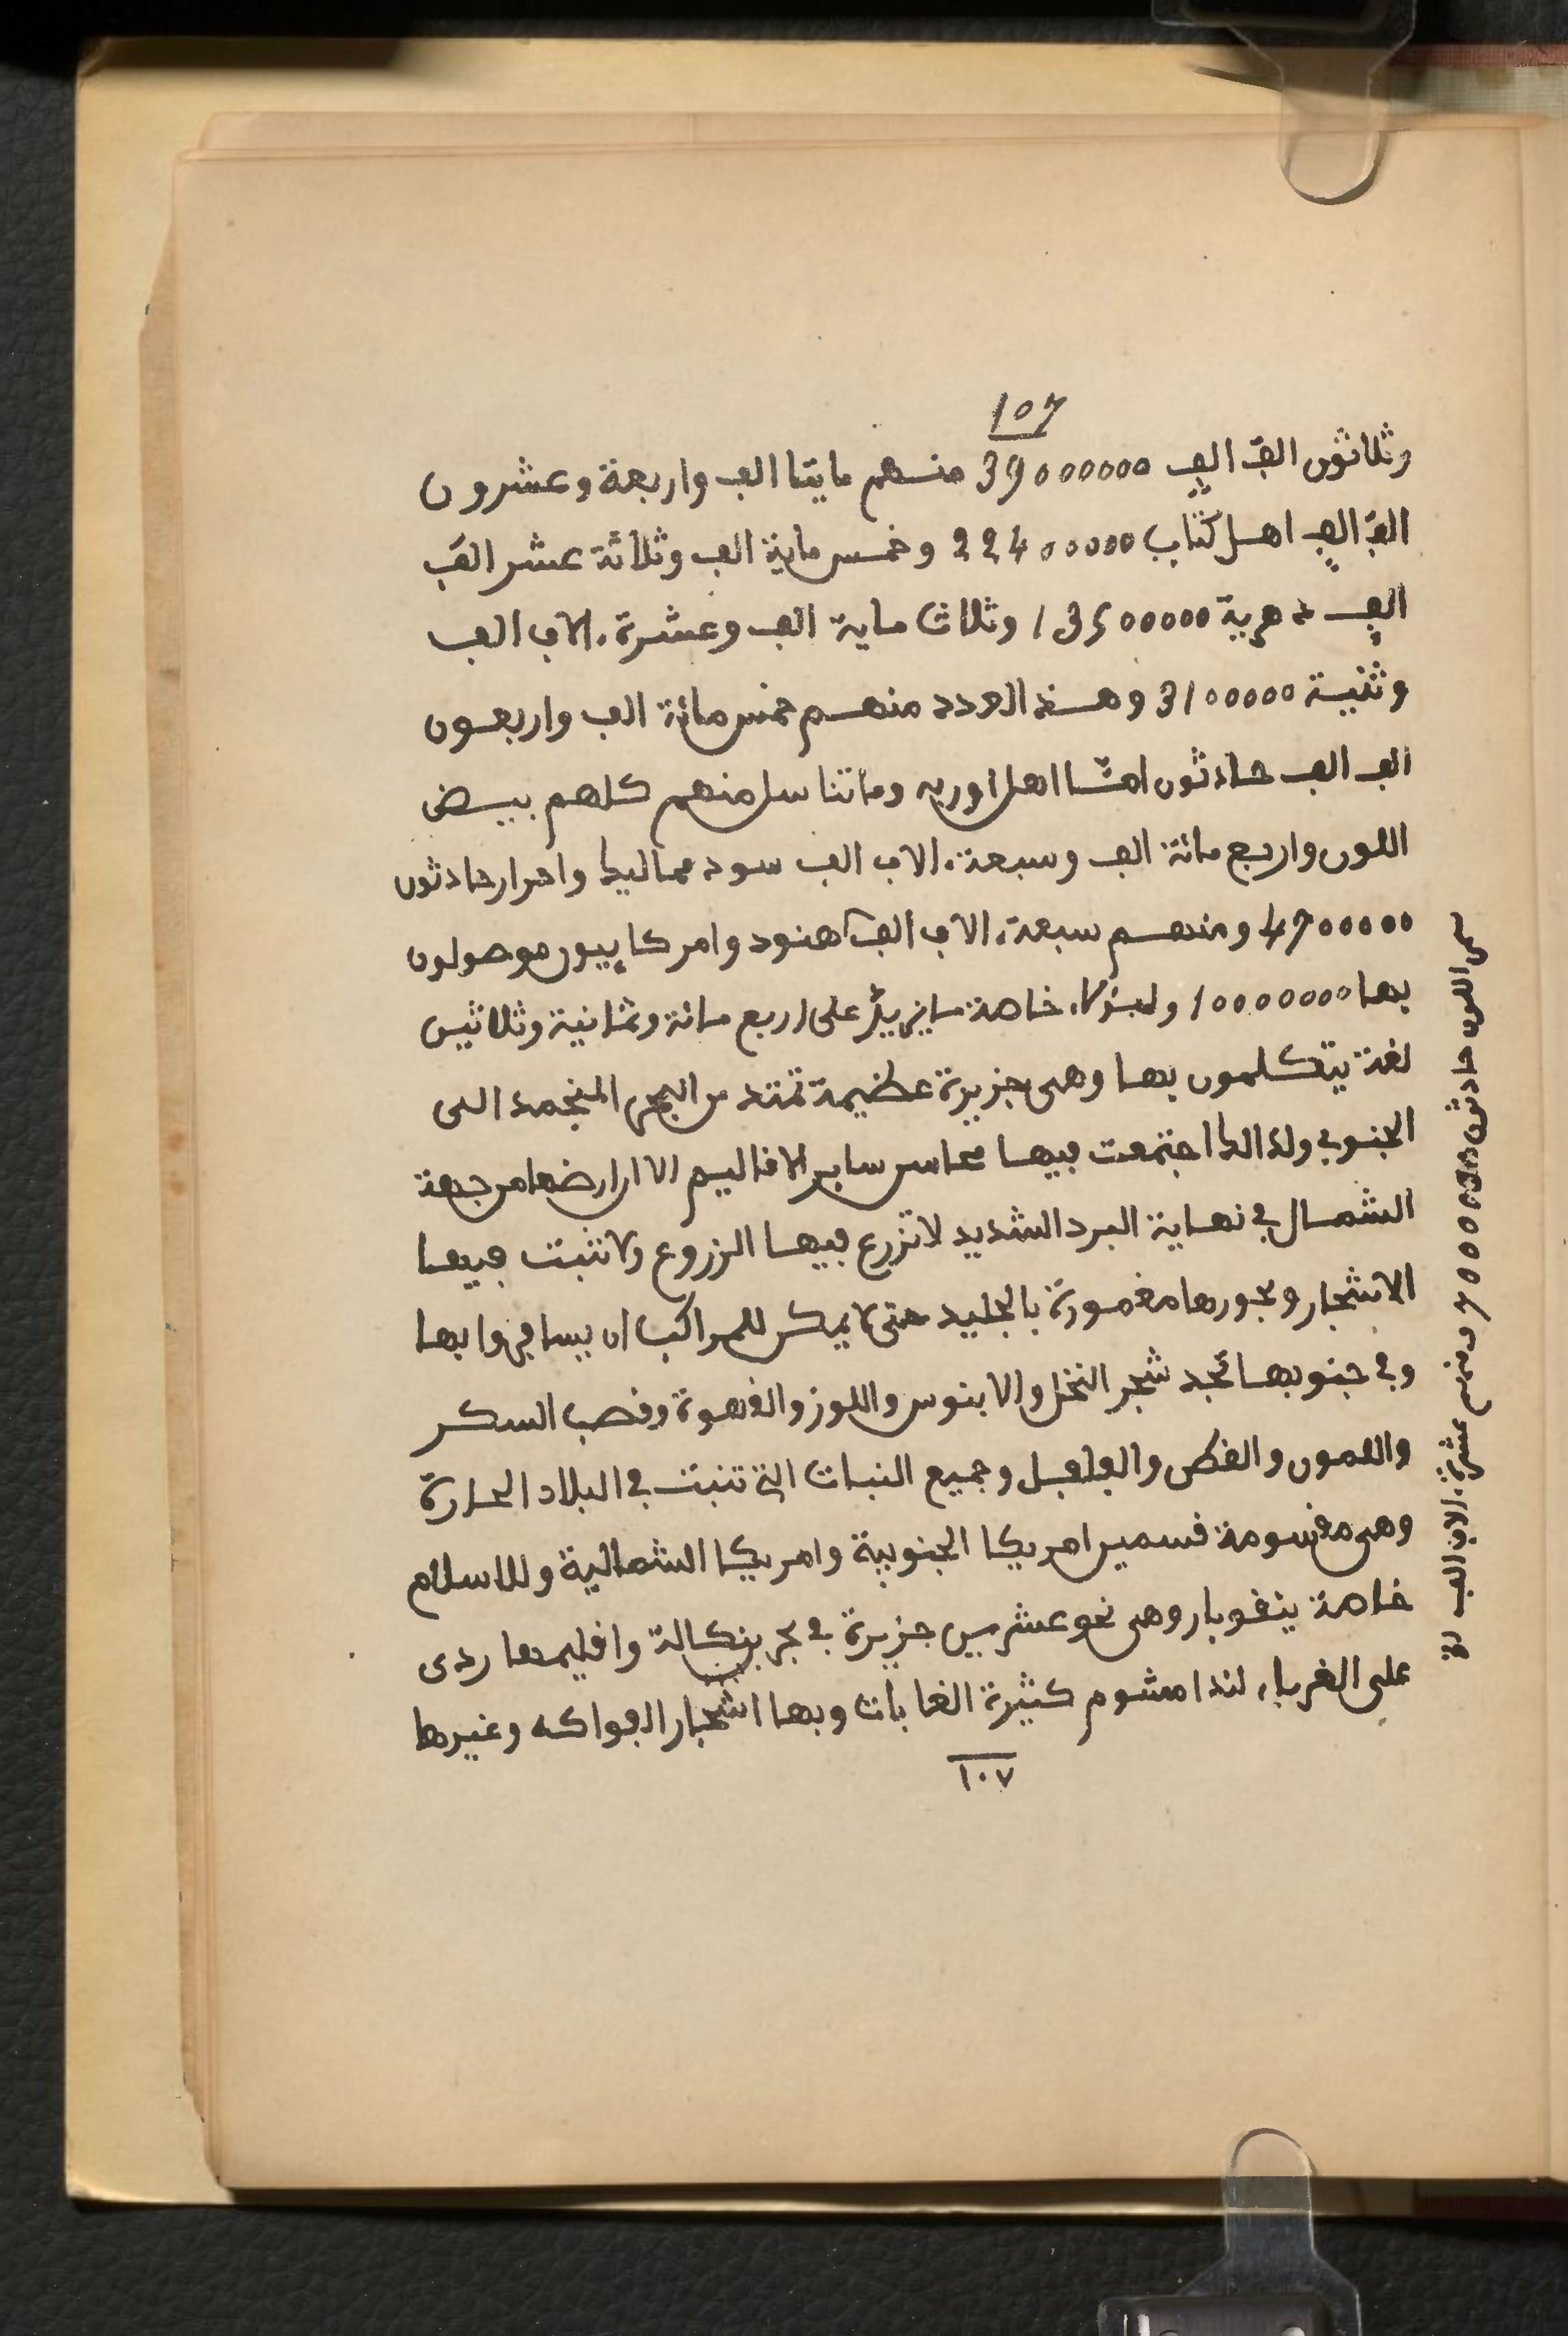 107
وثلاثون الف الف 39000000 منهم مايتا الف واربعة وعشرون
الف الف اهل كتاب 22400000 وخمس ماية الف وثلاثة عشر الف
الف دهرية 13500000 وثلاث ماية الف وعشرة ءالاف الف
وثنية 3100000 وهذ العدد منهم خمس مائة الف واربعون
الف الف حادثون اهل اوربه وما تناسل منهم كلهم بيض
اللون واربع مائة الف وسبعة ءالاف الف سود مماليك واحرار حادثون
4700000 ومنهم سبعة ءالاف الف هنود وامركاييون موصولون
بها 10000000 خاصة ما يزيد على اربع مائة وثمانية وثلاثين
لغة يتكلمون بها وهى جزيرة عظيمة تمتد من البحر المنجمد الى
الجنوبي ولذالك اجتمعت فيها محاسن ساير الاقاليم الا ان ارضها من جهة
الشمال في نهاية البرد الشديد لا تزرع فيها الزروع ولا تنبت فيها
الاشجار وبحورها مغمورة بالجليد حتى لا يمكن للمراكب ان يسافروا بها
وفي جنوبها تجد شجر النخل والابنوس واللوز والقهوة وقصب السكر
واللمون والفلفل وجميع النبات التي تنبت في البلاد الحارة
وهى مقسومة قسمين امريكا الجنوبية وامريكا الشمالية وللاسلام
خاصة ينقوبار وهى نحو عشرين جزيرة في بحر بنكالة واقليمها ردى
على الغرباء لندا مشوم كثيرة الغابات وبها اشجار الفواكه وغيرها
١٠٧
اللون حادثون ومنهم عشرة ءالاف الف